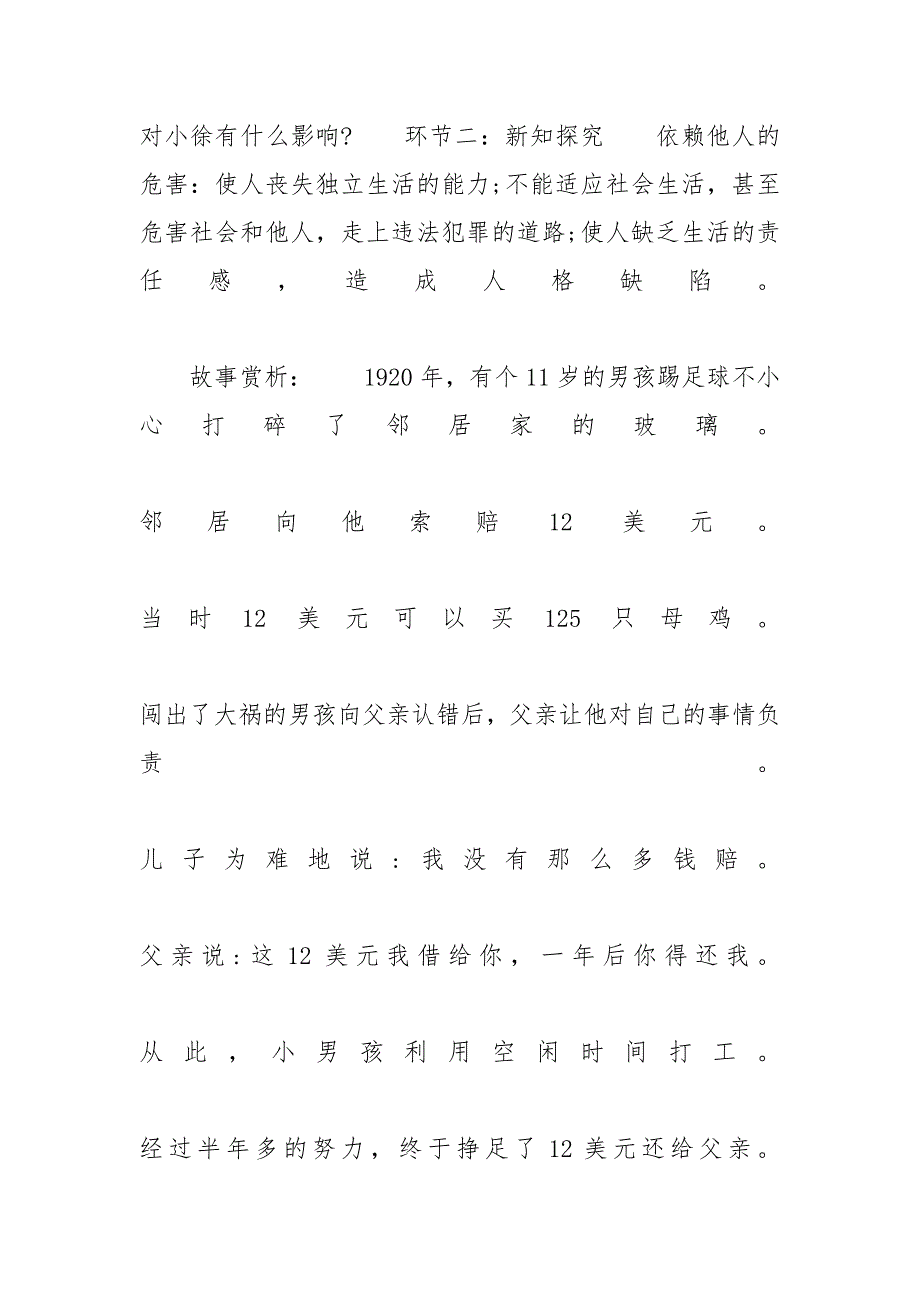 对小徐有什么影响?  环节二：新知探究  依赖他人的
危害：使人丧失独立生活的能力;不能适应社会生活，甚至
危害社会和他人，走上违法犯罪的道路;使人缺乏生活的责
任感，造成人格缺陷。
故事赏析：  1920 年，有个 11 岁的男孩踢足球不小
心打碎了邻居家的玻璃。
邻居向他索赔 12 美元。
当时 12 美元可以买 125 只母鸡。
闯出了大祸的男孩向父亲认错后，父亲让他对自己的事情负
责。
儿子为难地说:我没有那么多钱赔。
父亲说:这 12 美元我借给你，一年后你得还我。
从此，小男孩利用空闲时间打工。
经过半年多的努力，终于挣足了 12 美元还给父亲。